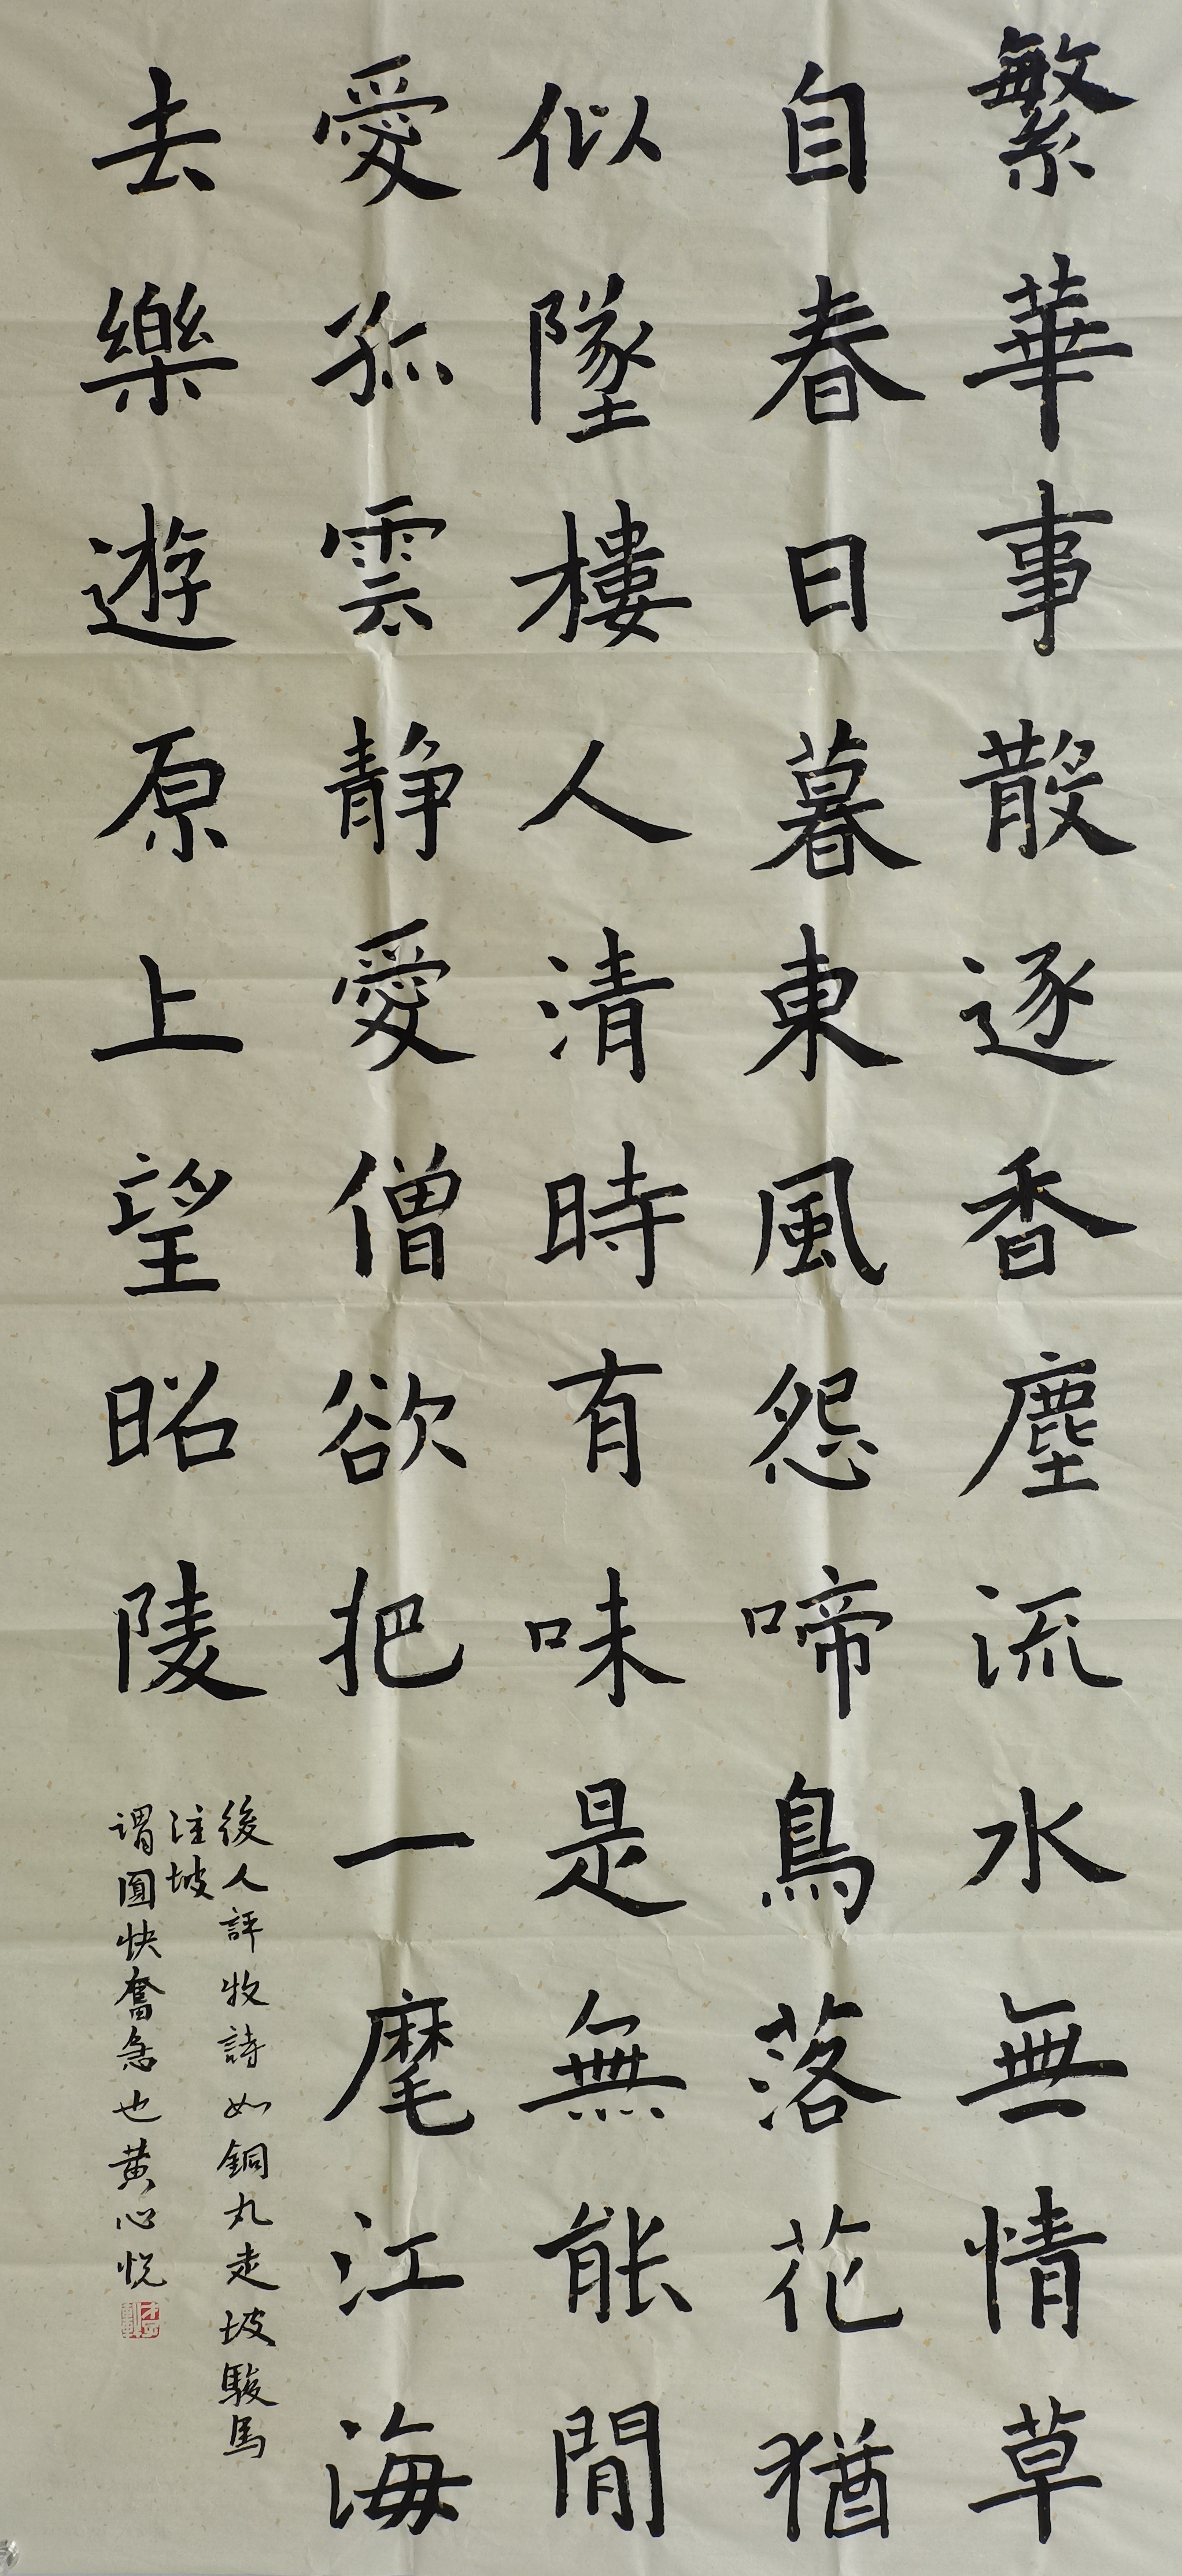 繁華事散逐香塵流水無情草
自春日暮東風怨啼鳥落花猶
似墜樓人清時有味是無能閒
愛孤雲靜愛僧欲把一麾江海
去樂遊原上望昭陵
後人評牧詩如銅丸走坡駿馬
注坡
謂圓快奮急也黃心悅